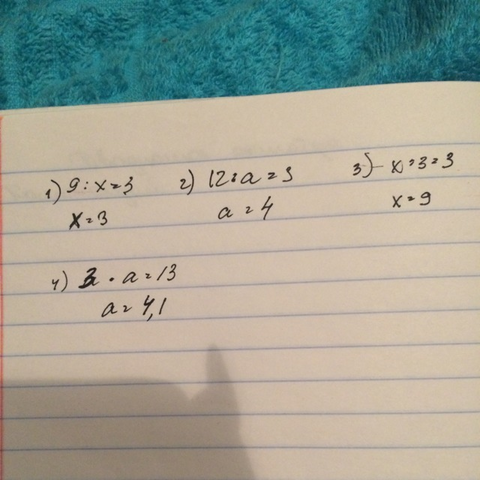 1) 9 : x = 3 2) 12 : a = 3 3) x : 3 = 3
x = 3 a = 4 x = 9
4) 3 · a = 13
a = 4,1